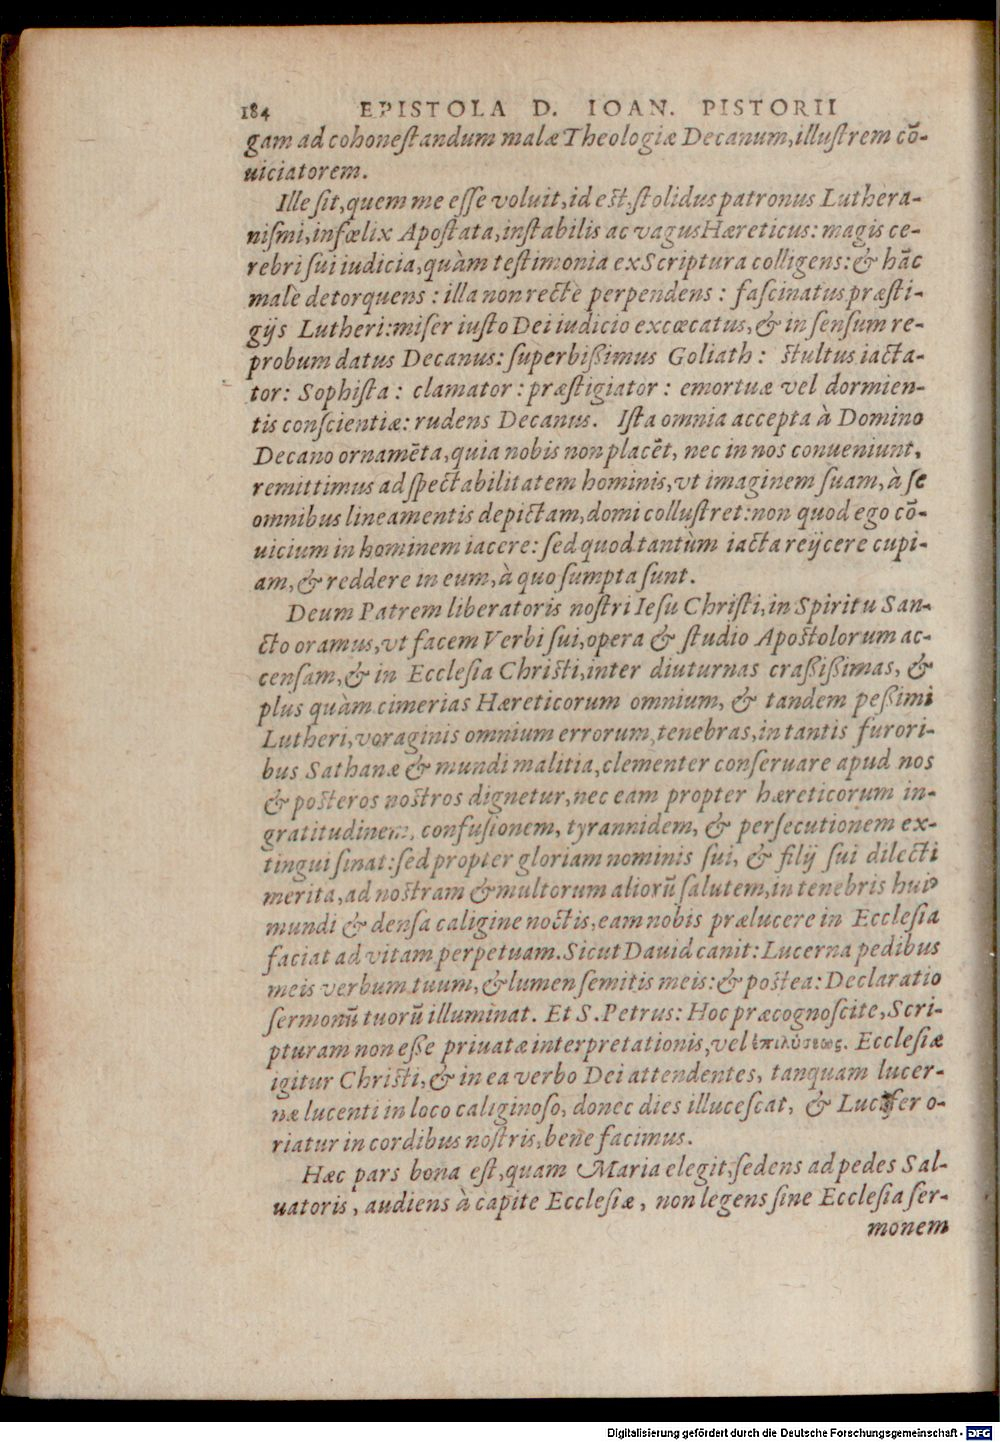 184 EPISTOLA D. IOAN. PISTORII
gam ad cohoneſtandum malæ Theologiæ Decanum, illuſtrem cō-
uiciatorem.
Ille ſit, quem me eſſe voluit, id eſt, ſtolidus patronus Luthera-
niſmi, infœlix Apoſtata, inſtabilis ac vagus Hæreticus: magis ce-
rebri ſui iudicia, quàm teſtimonia ex Scriptura colligens: & hāc
malè detorquens: illa non rectè perpendens: faſcinatus præſti-
gijs Lutheri: miſer iuſto Dei iudicio excœcatus, & in ſenſum re-
probum datus Decanus: ſuperbißimus Goliath: ſtultus iacta-
tor: Sophiſta: clamator: præſtigiator: emortuæ vel dormien-
tis conſcientiæ: rudens Decanus. Iſta omnia accepta à Domino
Decano ornamēta, quia nobis non placēt, nec in nos conueniunt,
remittimus ad ſpectabilitatem hominis, vt imaginem ſuam, à ſe
omnibus lineamentis depictam, domi colluſtret: non quod ego cō-
uicium in hominem iacere: ſed quod tantùm iacta reijcere cupi-
am, & reddere in eum, à quo ſumpta ſunt.
Deum Patrem liberatoris noſtri Ieſu Chriſti, in Spiritu San-
cto oramus, vt facem Verbi ſui, opera & ſtudio Apoſtolorum ac-
cenſam, & in Eccleſia Chriſti, inter diuturnas craßißimas, &
plus quàm cimerias Hæreticorum omnium, & tandem peßimi
Lutheri, voraginis omnium errorum, tenebras, in tantis furori-
bus Sathanæ & mundi malitia, clementer conſeruare apud nos
& poſteros noſtros dignetur, nec eam propter hæreticorum in-
gratitudinem, confuſionem, tyrannidem, & perſecutionem ex-
tingui ſinat: ſed propter gloriam nominis ſui, & filij ſui dilecti
merita, ad noſtram & multorum aliorū ſalutem, in tenebris huiꝰ
mundi & denſa caligine noctis, eam nobis prælucere in Eccleſia
faciat ad vitam perpetuam. Sicut Dauid canit: Lucerna pedibus
meis verbum tuum, & lumen ſemitis meis: & poſtea: Declaratio
ſermonū tuorū illuminat. Et S. Petrus: Hoc præcognoſcite, Scri-
pturam non eße priuatæ interpretationis, vel ἐπιλύσεως. Eccleſiæ
igitur Chriſti, & in ea verbo Dei attendentes, tanquam lucer-
næ lucenti in loco caliginoſo, donec dies illuceſcat, & Lucifer o-
riatur in cordibus noſtris, bene facimus.
Hæc pars bona eſt, quam Maria elegit, ſedens ad pedes Sal-
uatoris, audiens à capite Eccleſiæ, non legens ſine Eccleſia ſer-
monem
Digitalisierung gefördert durch die Deutsche Forschungsgemeinschaft - DFG